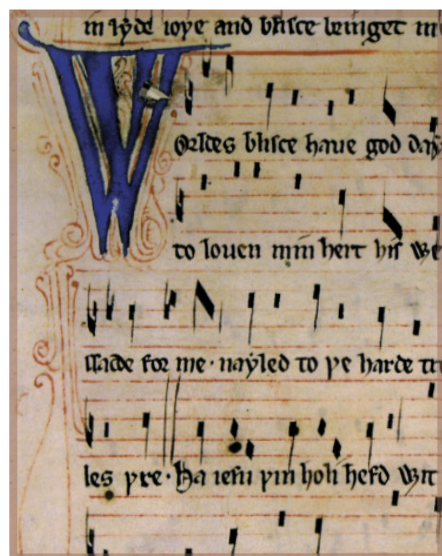 ioye and blisce
Worldes blisce haue god day
to louen min hert his we
ssade for me · nayled to þe harde tre
les þre · Ha iesu þin holi hefd wit